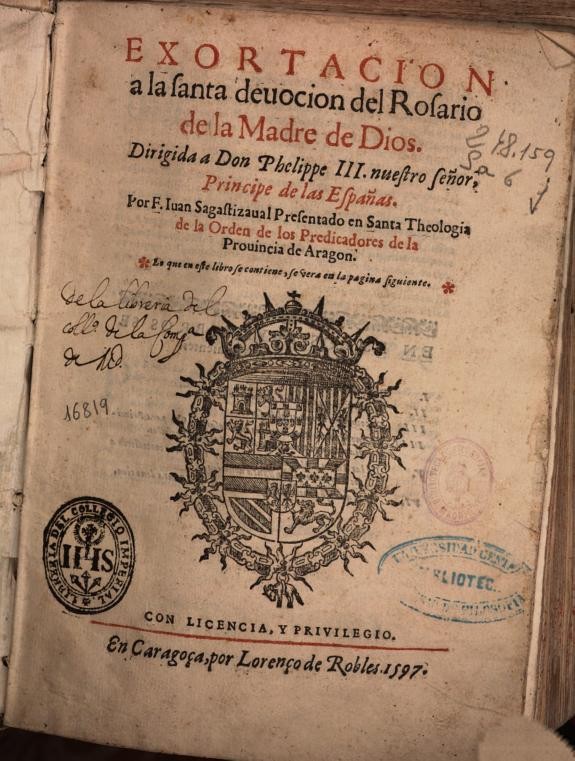 EXORTACION
a la santa deuocion del Rosario
de la Madre de Dios.
Dirigida a Don Phelippe III. nuestro señor,
Principe de las Españas.
Por F. Iuan Sagastizaual Presentado en Santa Theologia
de la Orden de los Predicadores de la
Prouincia de Aragon.
* Lo que en este libro se contiene, se vera en la pagina siguiente. *
De la libreria del
collº. de la Comp.ª
de
16819
LIBRERIA DEL COLLEGIO IMPERIAL
IHS
UNIVERSIDAD
BIBLIOTEC
DE FILOSOFIA
CON LICENCIA, Y PRIVILEGIO.
En Caragoça, por Lorenço de Robles. 1597.